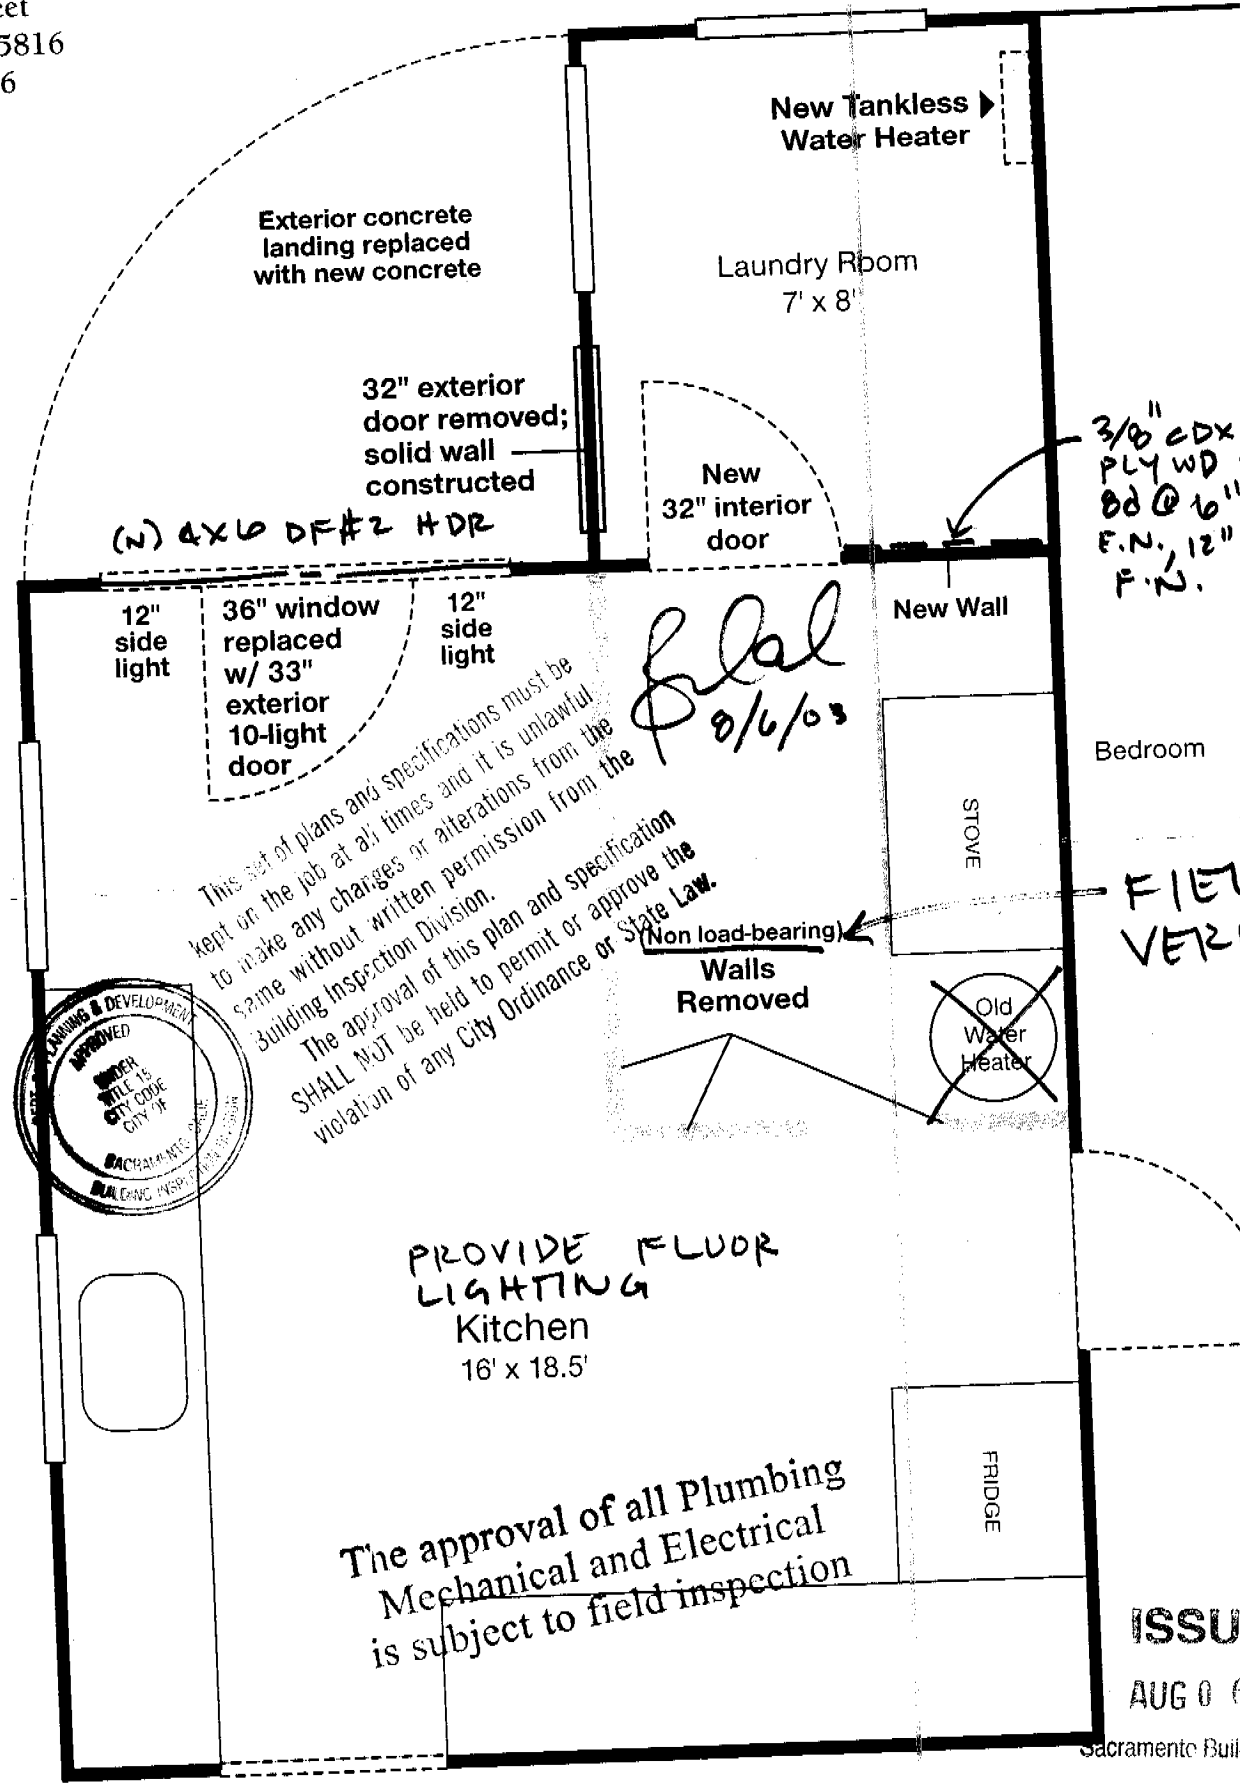 5816
6
New Tankless
Water Heater
Exterior concrete
landing replaced
with new concrete
Laundry Room
7' x 8'
32" exterior
door removed;
solid wall
constructed
New
32" interior
door
3/8" CDX
PLYWD
8d @ 6"
E.N., 12"
F.N.
(N) 4X6 DF#2 HDR
12"
side
light
36" window
replaced
w/ 33"
exterior
10-light
door
12"
side
light
New Wall
8/6/03
Bedroom
STOVE
This set of plans and specifications must be
kept on the job at all times and it is unlawful
to make any changes or alterations from the
same without written permission from the
Building Inspection Division.
The approval of this plan and specification
SHALL NOT be held to permit or approve the
violation of any City Ordinance or State Law.
(Non load-bearing)
Walls
Removed
Old
Water
Heater
PLANNING & DEVELOPMENT
APPROVED
UNDER
TITLE 15
CITY CODE
CITY OF
SACRAMENTO
BUILDING INSPECTION DIVISION
PROVIDE FLUOR
LIGHTING
Kitchen
16' x 18.5'
FRIDGE
The approval of all Plumbing
Mechanical and Electrical
is subject to field inspection
ISSU
AUG 0 6
Sacramento Buil